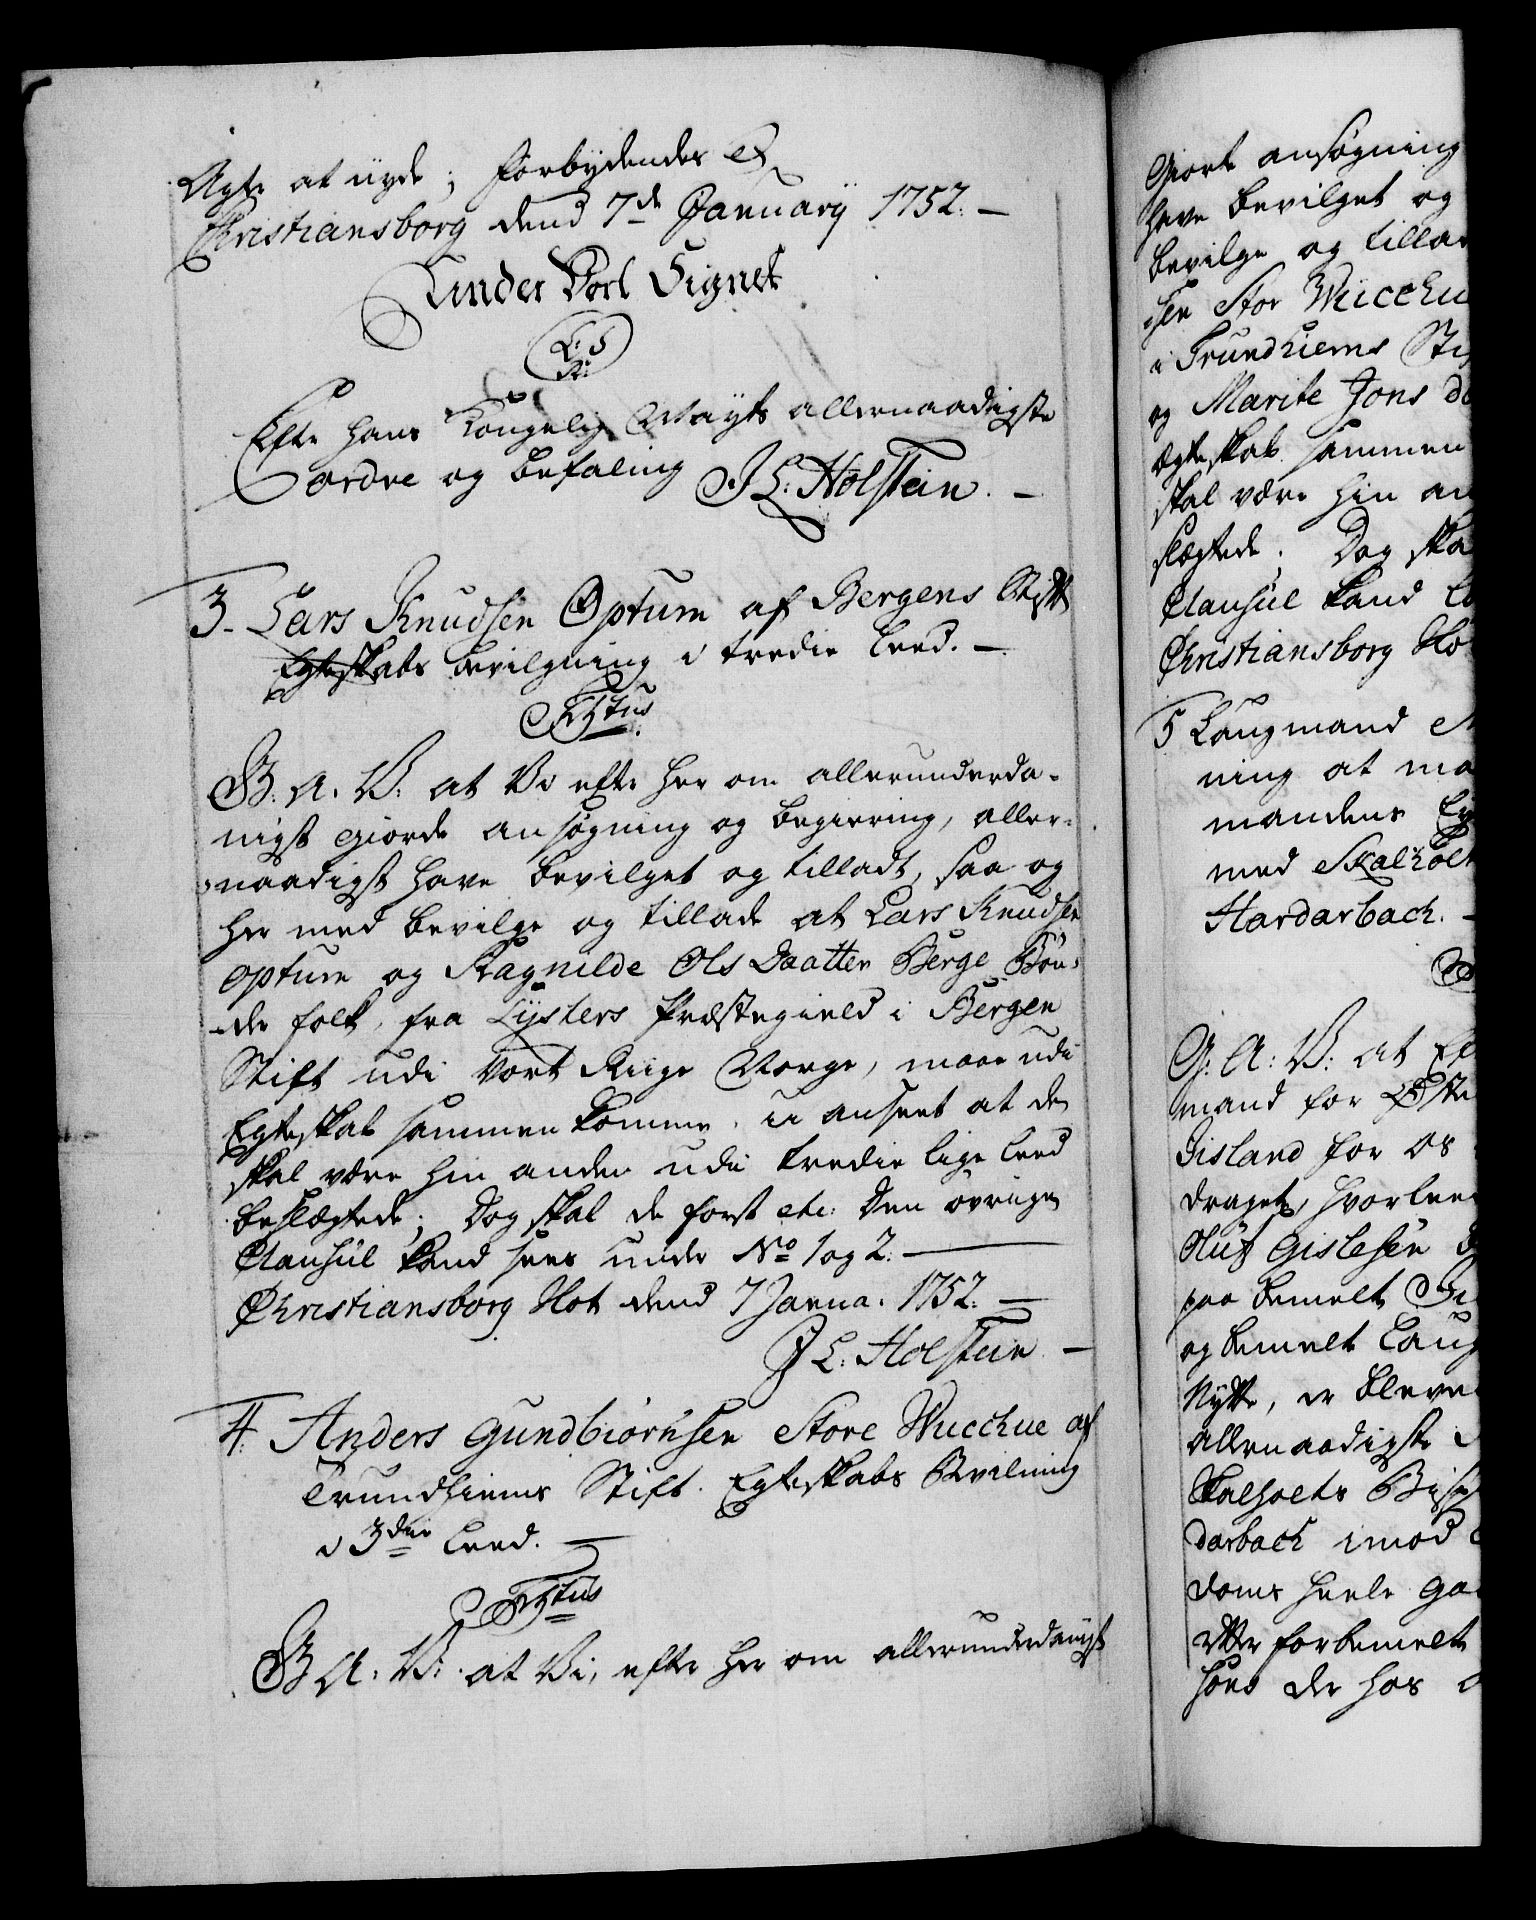 Agte at nyde; forbydendes etc
Christiansborg dend 7de January 1752. —
Under Vort Signet
L: S
R:
Efter hans Kongelig Mayts allernaadigste
ordre og befaling J L: Holstein. —
3. Lars Knudsen Optum af Bergens Stift
Egteskabs bevilgning i tredie leed. —
G: A. V: at Vi efter her om allerunderda-
nigst giorde ansøgning og begiering, aller-
naadigst have bevilget og tilladt, saa og
her med bevilge og tillade at Lars Knudsen
optum og Ragnilde Ols Daatter Berge Bøn-
de folk, fra Lysters Præstegield i Bergen
Stift udi Vort Riige Norge, maae udi
Egteskab sammen komme, u anseet at de
skal være hin anden udi tredie lige leed
beslægtede; Dog skal de forst etc: Den øvrige
Clausul kand sees under No 1 og 2. —
Christiansborg Slot dend 7 Janua. 1752. —
J L: Holstein —
4. Anders Gundbiørnsen Store Wucchue af
Trundhiems Stift. Egteskabs Bevilning
i 3die leed. —
G A: V: at Vi, efter her om allerunderdanigst
Giorte ansøgning
have bevilget og
bevilge og tillad
sen Stor Wucchu
i Trundhiems Sti
og Marite Jons d
Egteskab sammen
skal være hin an
slægtede; Dog ska
Clausul kand
Christiansborg Slo
5 Laugmand
ning at ma
mandens
med Skalholt
Hardarbach. —
G: A: V: at
mand for Øste
Iisland for os
draget, hvorlee
Oluf Gislesen
paa bemelt
og bemelt Laug
Nytte, er bleve
allernaadigste
Skalholts Bisp
darbach imod
doms heele
etter forbemelt
hans der hos